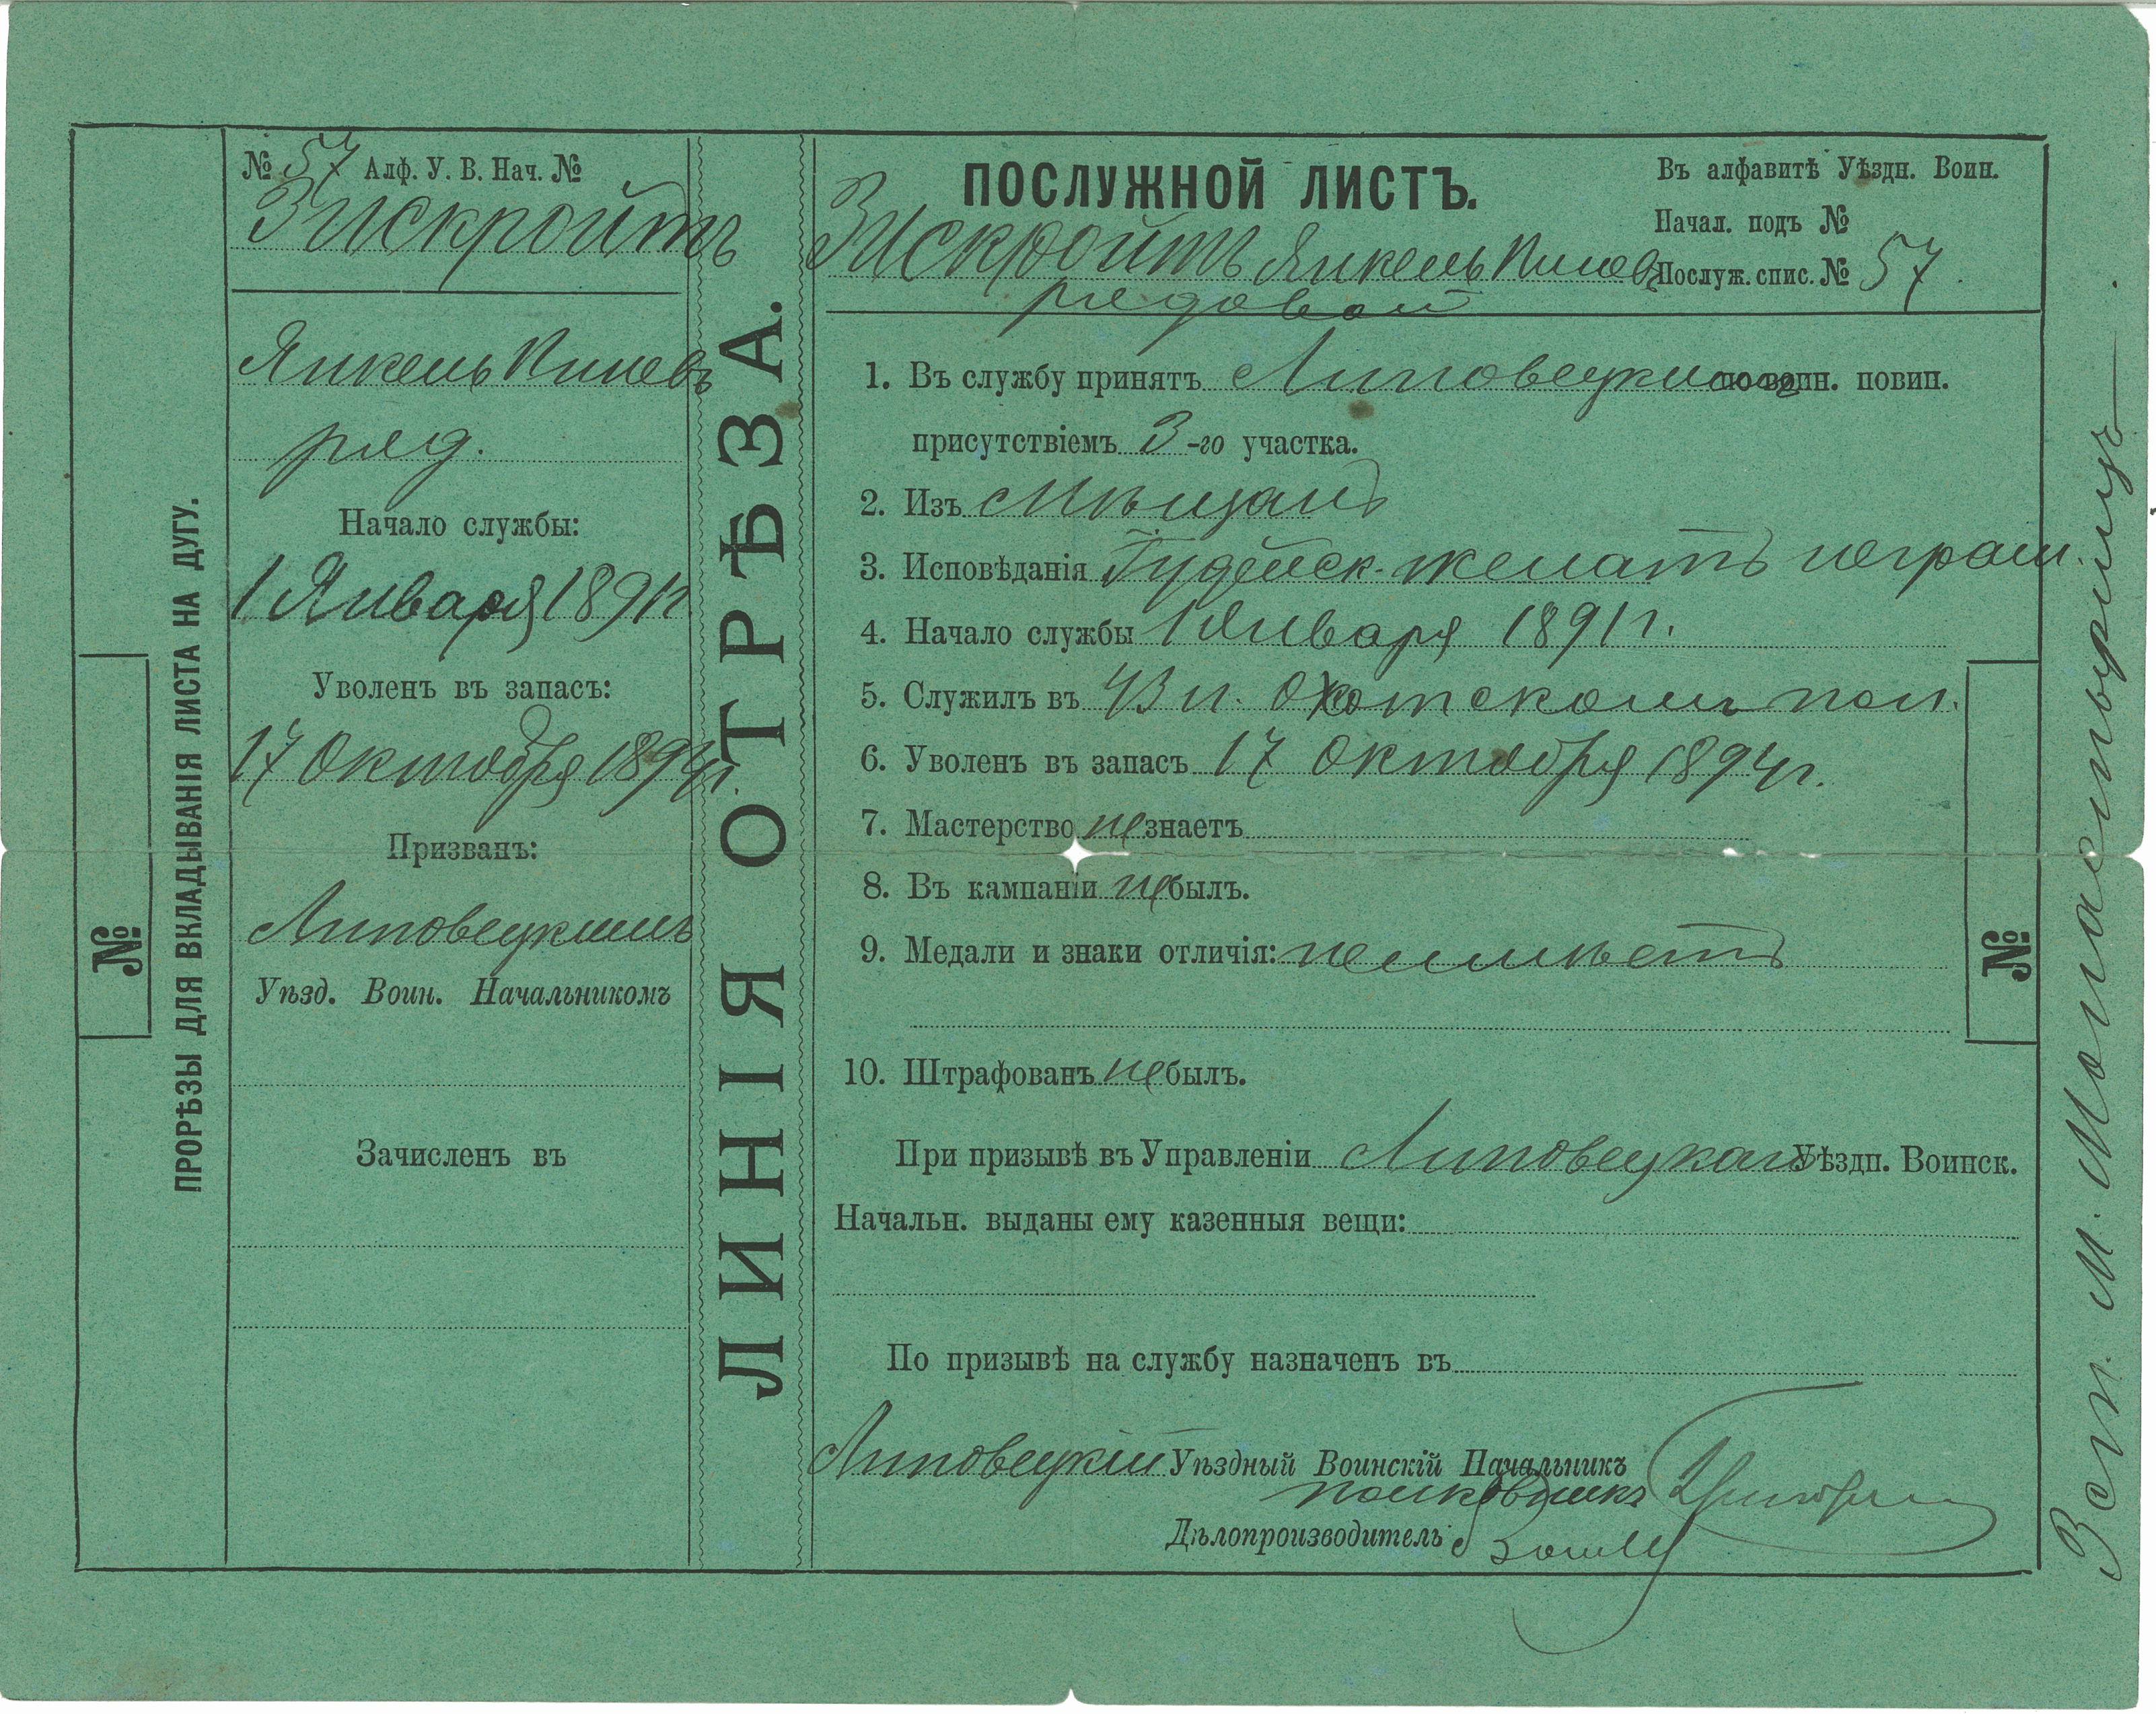 № 57 Алф. У. В. Нач. №
Зискройтъ
Янкель
ряд.
Начало службы:
1 Января 1891 г.
Уволенъ въ запасъ:
17 Октября 1894 г.
Призванъ:
Липовецкимъ
Уѣзд. Воин. Начальникомъ
Зачисленъ въ
№
ПРОРѢЗЫ ДЛЯ ВКЛАДЫВАНІЯ ЛИСТА НА ДУГУ.
ЛИНІЯ ОТРѢЗА.
ПОСЛУЖНОЙ ЛИСТЪ.
Въ алфавитѣ Уѣздн. Воин.
Начал. подъ №
Зискройтъ Янкель Послуж. спис. № 57
рядовой
1. Въ службу принятъ Липовецкимъ по воин. повин.
присутствіемъ 3-го участка.
2. Изъ Мѣщанъ
3. Исповѣданія Іудейск. женатъ неграм.
4. Начало службы 1 Января 1891 г.
5. Служилъ въ 43 п. Охотскомъ пол.
6. Уволенъ въ запасъ 17 Октября 1894 г.
7. Мастерство не знаетъ
8. Въ кампаніи не былъ.
9. Медали и знаки отличія: неимѣетъ
10. Штрафованъ не былъ.
При призывѣ въ Управленіи Липовецкаго Уѣздн. Воинск.
Начальн. выданы ему казенныя вещи:
По призывѣ на службу назначенъ въ
Липовецкій Уѣздный Воинскій Начальникъ
полковникъ
Дѣлопроизводитель
№
м. Монастырищъ